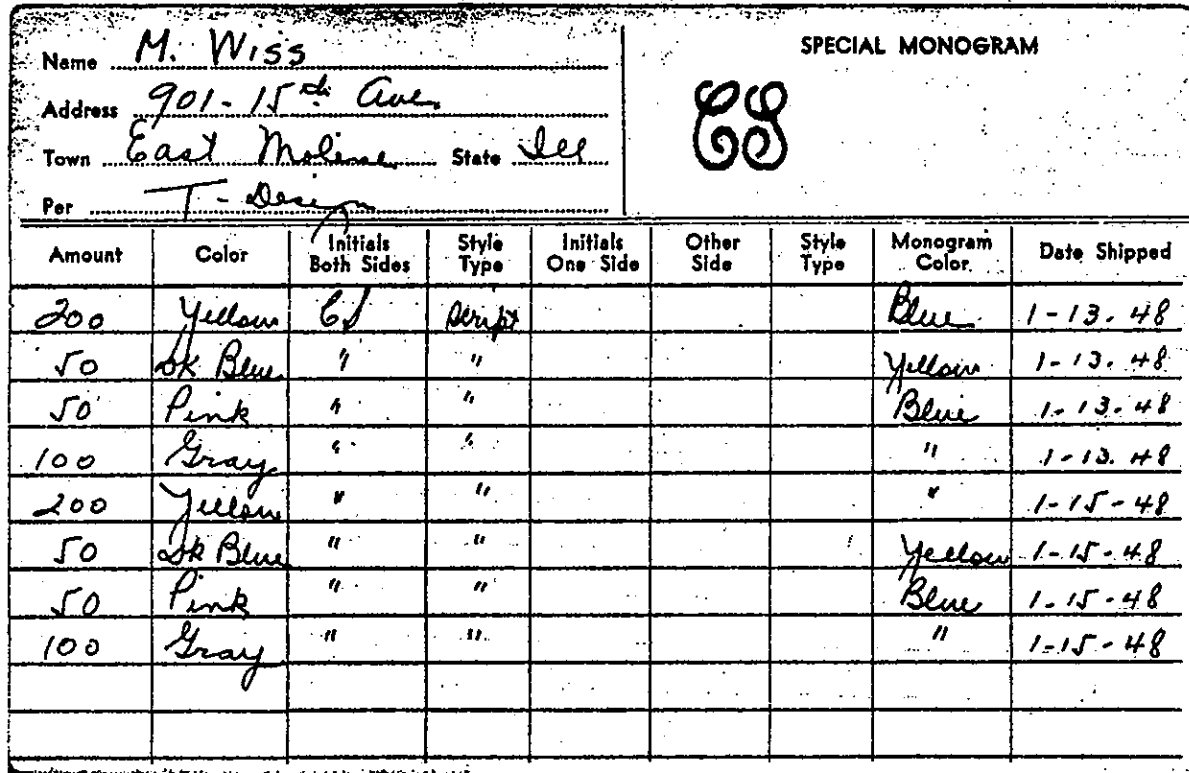 SPECIAL MONOGRAM
Name M. Wiss
Address 901-15th Ave.
Town East Moline State Ill
Per T-Design
CS
Amount Color Initials Both Sides Style Type Initials One Side Other Side Style Type Monogram Color. Date Shipped
200 Yellow CS Script Blue 1-13-48
50 DK Blue " " Yellow 1-13-48
50 Pink " " Blue 1-13-48
100 Gray " " " 1-13-48
200 Yellow " " " 1-15-48
50 DK Blue " " Yellow 1-15-48
50 Pink " " Blue 1-15-48
100 Gray " " " 1-15-48